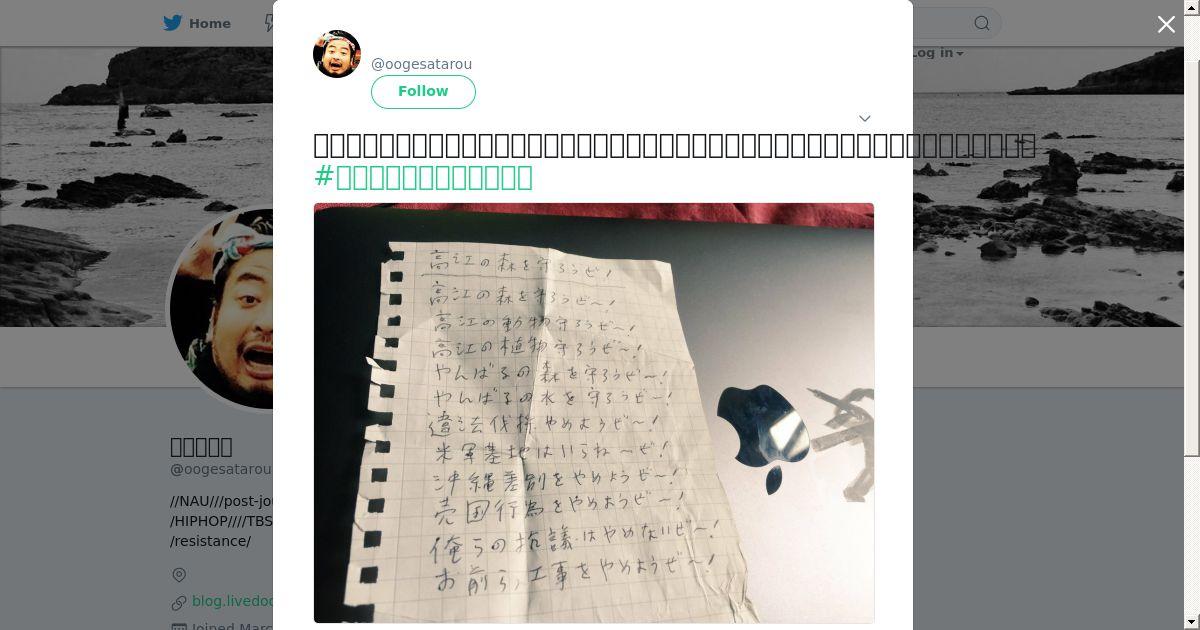 Home
Log in
@oogesatarou
Follow
#
高江の森を守ろうぜ!
高江の森を守ろうぜ〜!
高江の動物守ろうぜ〜!
高江の植物守ろうぜ〜!
やんばるの森を守ろうぜ〜!
やんばるの水を守ろうぜ〜!
違法伐採やめようぜ〜!
米軍基地はいらね〜ぜ!
沖縄差別をやめようぜ〜!
売国行為をやめようぜ〜!
俺らの抗議はやめないぜ〜!
お前ら、工事をやめようぜ〜!
@oogesatarou
//NAU///post-jou
/HIPHOP////TBS
/resistance/
blog.livedoo
Joined Marc